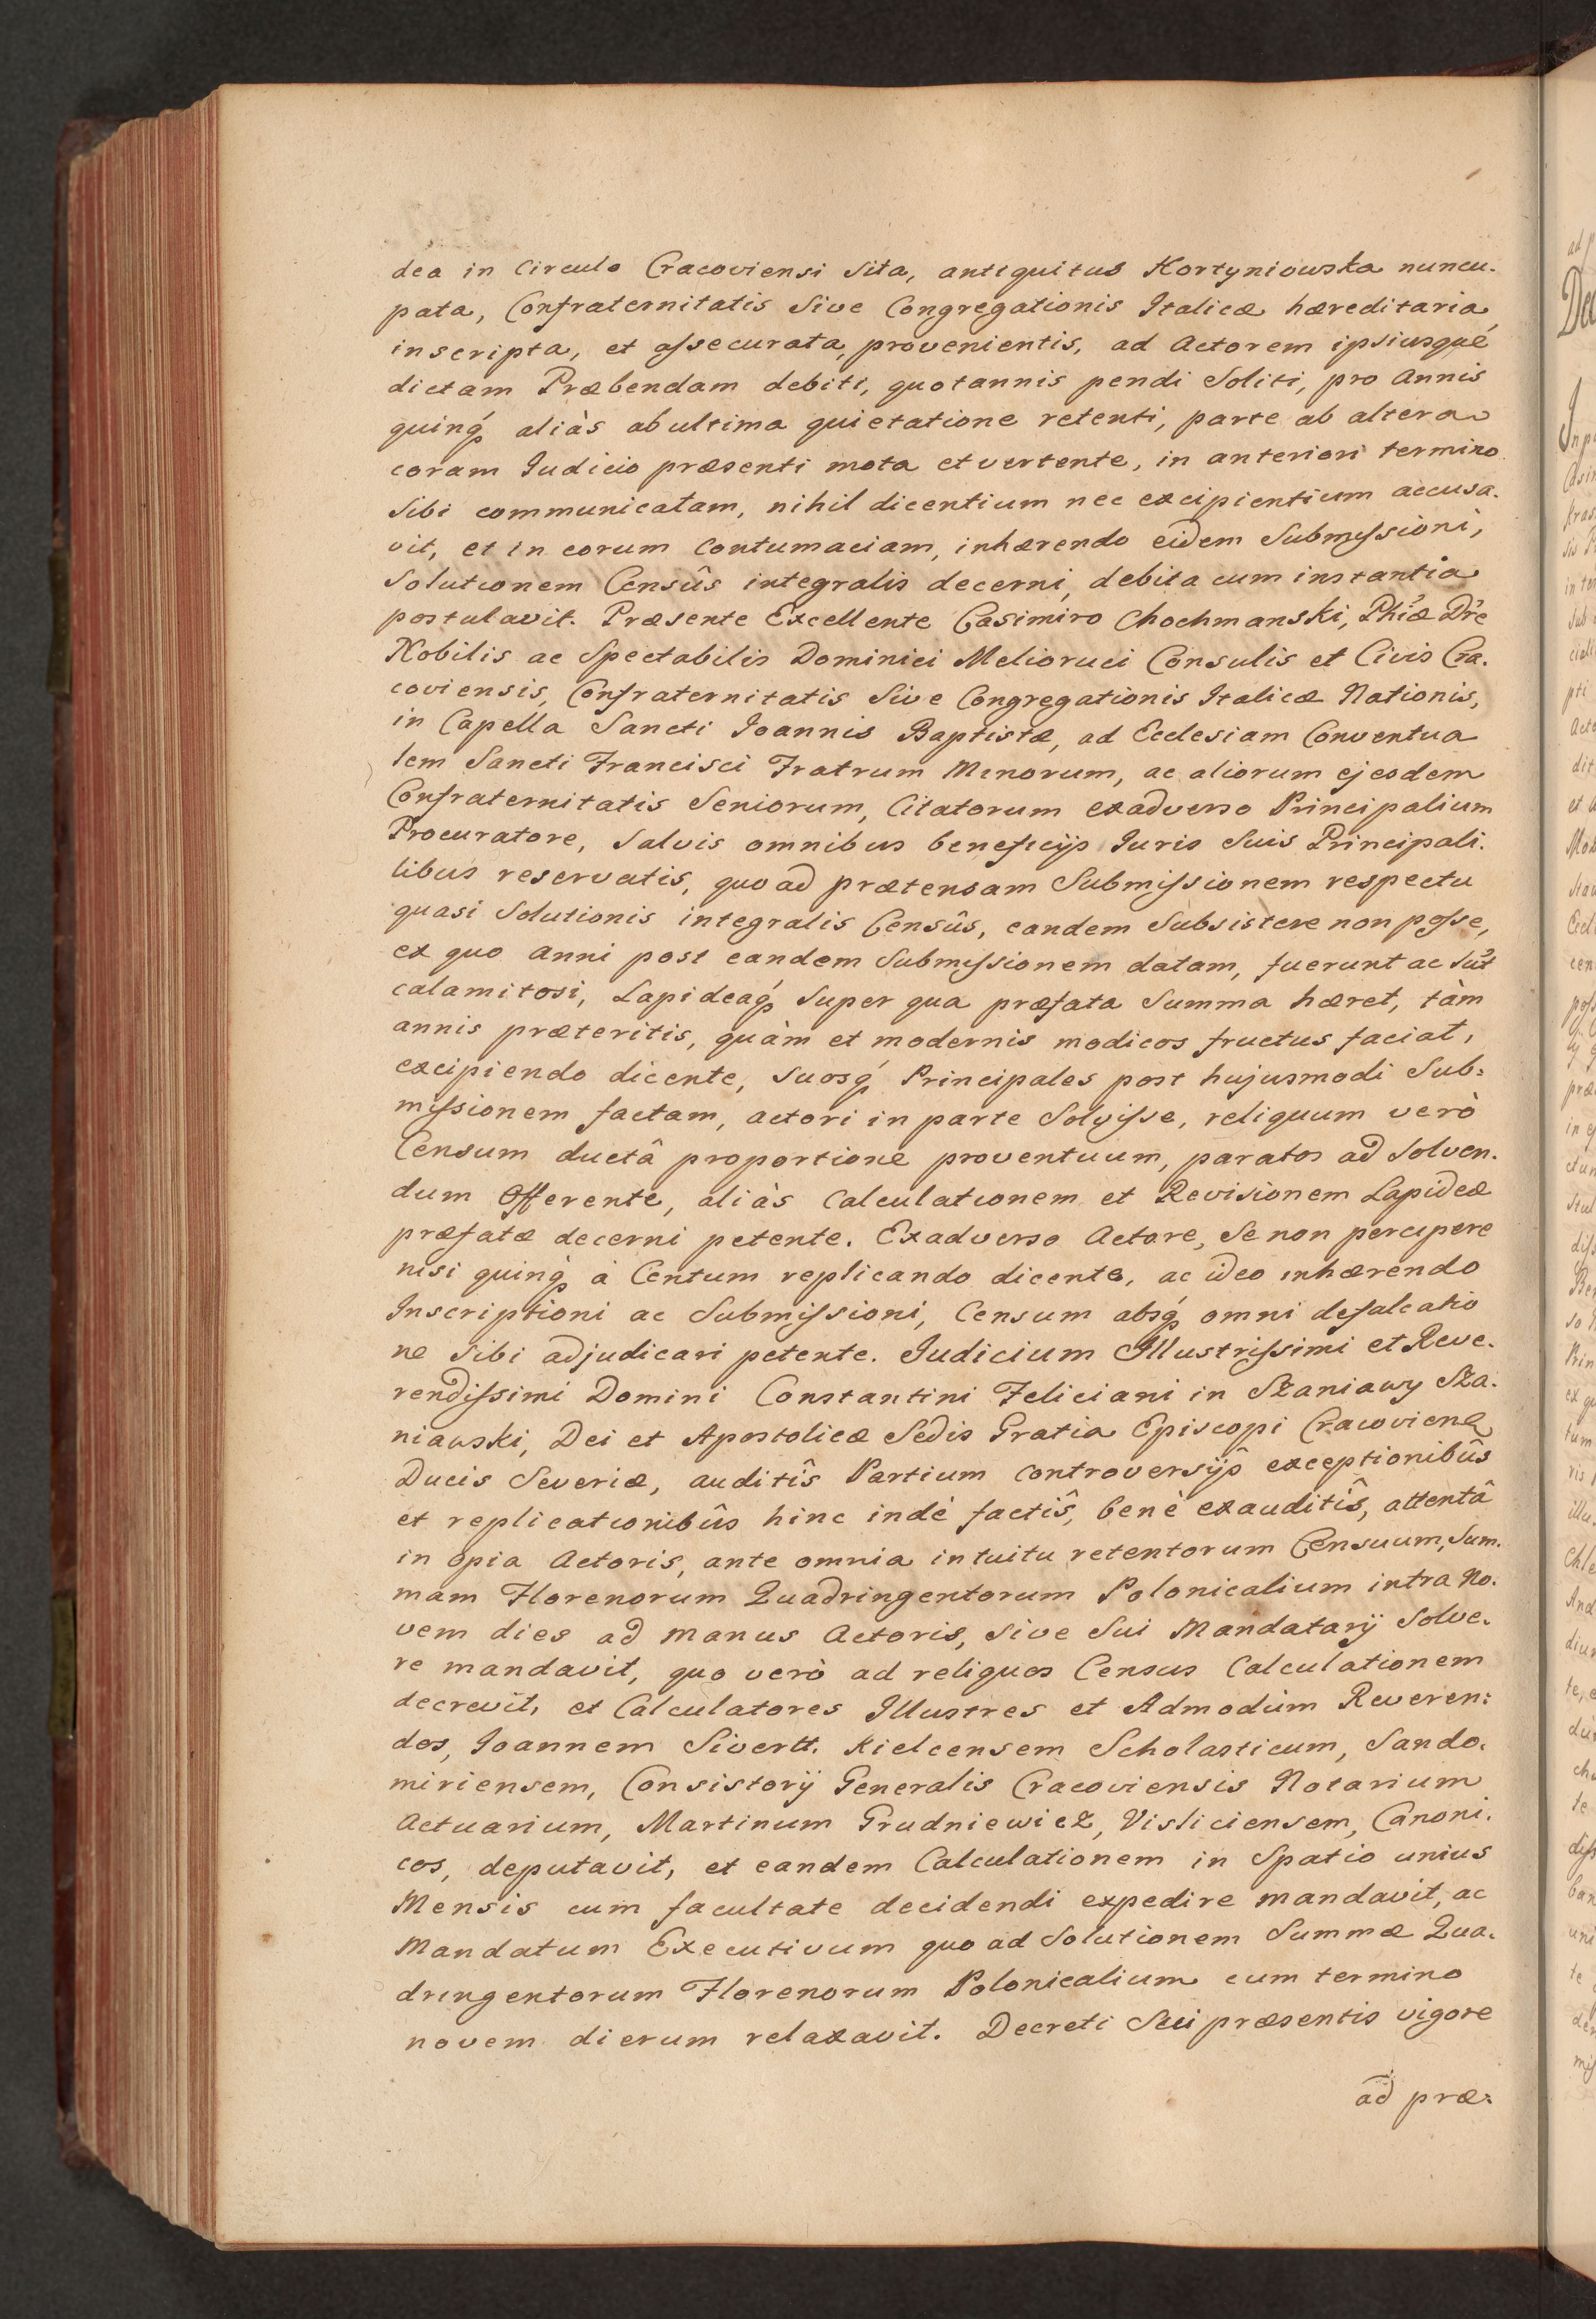 dea in Circulo Cracoviensi Sita, antiquitus Kortyniowska nuncu-
pata, Confraternitatis Sive Congregationis Italicæ hæreditaria,
inscripta, et assecurata, provenientis, ad Actorem ipsiusque
dictam Præbendam debiti, quotannis pendi Soliti, pro Annis
quinq́ aliàs ab ultima quietatione retenti, parte ab altera
coram Iudicio præsenti mota et vertente, in anteriori termino
Sibi communicatam, nihil dicentium nec excipientium accusa-
vit, et in eorum Contumaciam, inhærendo eidem Submissioni,
Solutionem Censûs integralis decerni, debita cum instantia
postulavit. Præsente Excellente Casimiro Chochmanski, Phiæ Dre
Nobilis ac Spectabilis Dominici Melioruci Consulis et Civis Cra-
coviensis, Confraternitatis Sive Congregationis Italicæ Nationis,
in Capella Sancti Ioannis Baptistæ, ad Ecclesiam Conventua
lem Sancti Francisci Fratrum Minorum, ac aliorum ejesdem
Confraternitatis Seniorum, Citatorum exadverso Principalium
Procuratore, Salvis omnibus beneficijs Iuris Suis Principali-
libus reservatis, quo ad prætensam Submissionem respectu
quasi Solutionis integralis Censûs, eandem Subsistere non posse,
ex quo anni post eandem Submissionem datam, fuerunt ac sũt
calamitosi, Lapideaq́ Super qua præfata Summa hæret, tàm
annis præteritis, quàm et modernis modicos fructus faciat,
excipiendo dicente, Suosq́ Principales post hujusmodi Sub-
missionem factam, actori in parte Solvisse, reliquum verò
Censum ductâ proportione proventuum, paratos ad Solven-
dum Offerente, aliàs Calculationem et Revisionem Lapideæ
præfatæ decerni petente. Exadverso Actore, Se non percipere
nisi quinq́ à Centum replicando dicente, ac ideo inhærendo
Inscriptioni ac Submissioni, Censum absq́ omni defalcatio
ne Sibi adjudicari petente. Iudicium Illustrissimi et Reve-
rendissimi Domini Constantini Feliciani in Szaniawy Sza-
niawski, Dei et Apostolicæ Sedis Gratia Episcopi Cracovien
Ducis Severiæ, auditîs Partium controversijs exceptionibûs
et replicationibûs hinc indè factîs, benè exauditîs, attentâ
in opia Actoris, ante omnia intuitu retentorum Censuum, Sum-
mam Florenorum Quadringentorum Polonicalium intra No-
vem dies ad manus Actoris, Sive Sui Mandatarij Solve-
re mandavit, quo verò ad reliquos Census Calculationem
decrevit, et Calculatores Illustres et Admodùm Reveren-
dos, Ioannem Sivertt. Kielcensem Scholasticum, Sando-
miriensem, Consistorij Generalis Cracoviensis Notarium
Actuarium, Martinum Grudniewicz, Visliciensem, Canoni-
cos, deputavit, et eandem Calculationem in Spatio unius
Mensis cum facultate decidendi expedire mandavit, ac
Mandatum Executivum quo ad Solutionem Summæ Qua-
dringentorum Florenorum Polonicalium cum termino
novem dierum relaxavit. Decreti Sui præsentis vigore
ad præ-